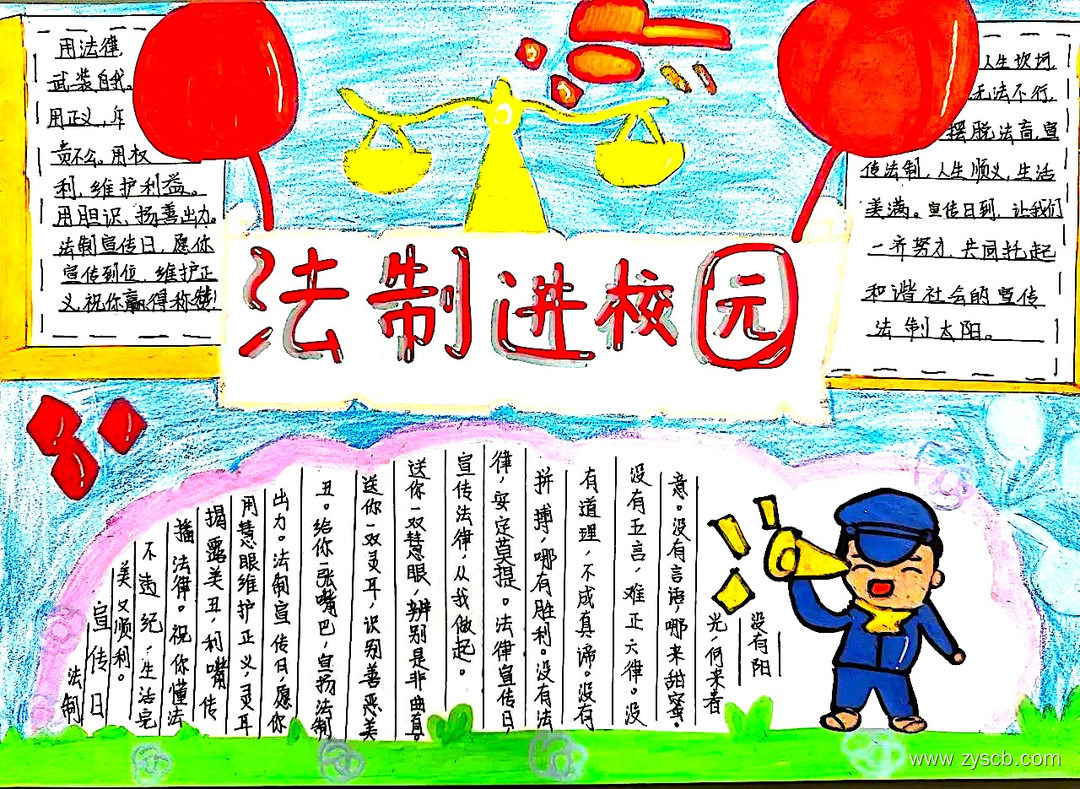 用法律
武装自我。
用正义,年
责不会。用权
利,维护利益。
用胆识、扬善出力。
法制宣传日,愿你
宣传到位,维护正
义,祝你赢得称赞!
人生坎坷,
无法不行,
摆脱法盲,宣
传法制,人生顺义,生活
美满。宣传日到,让我们
一齐努力,共同托起
和谐社会的宣传
法制太阳。
法制进校园
没有阳
光何来着
意。没有言语,哪来甜蜜。
没有五言,难正六律。没
有道理,不成真谛。没有
拼搏,哪有胜利。没有法
律,安定莫提。法律宣传日,
宣传法律,从我做起。
送你一双慧眼,辨别是非曲直。
送你一双灵耳,识别善恶美
丑。给你一张嘴巴,宣扬法制
出力。法制宣传日,愿你
用慧眼维护正义,灵耳
揭露美丑,利嘴传
播法律。祝你懂法
不违纪,生活完
美又顺利。
宣传日
法制
www.zyscb.com